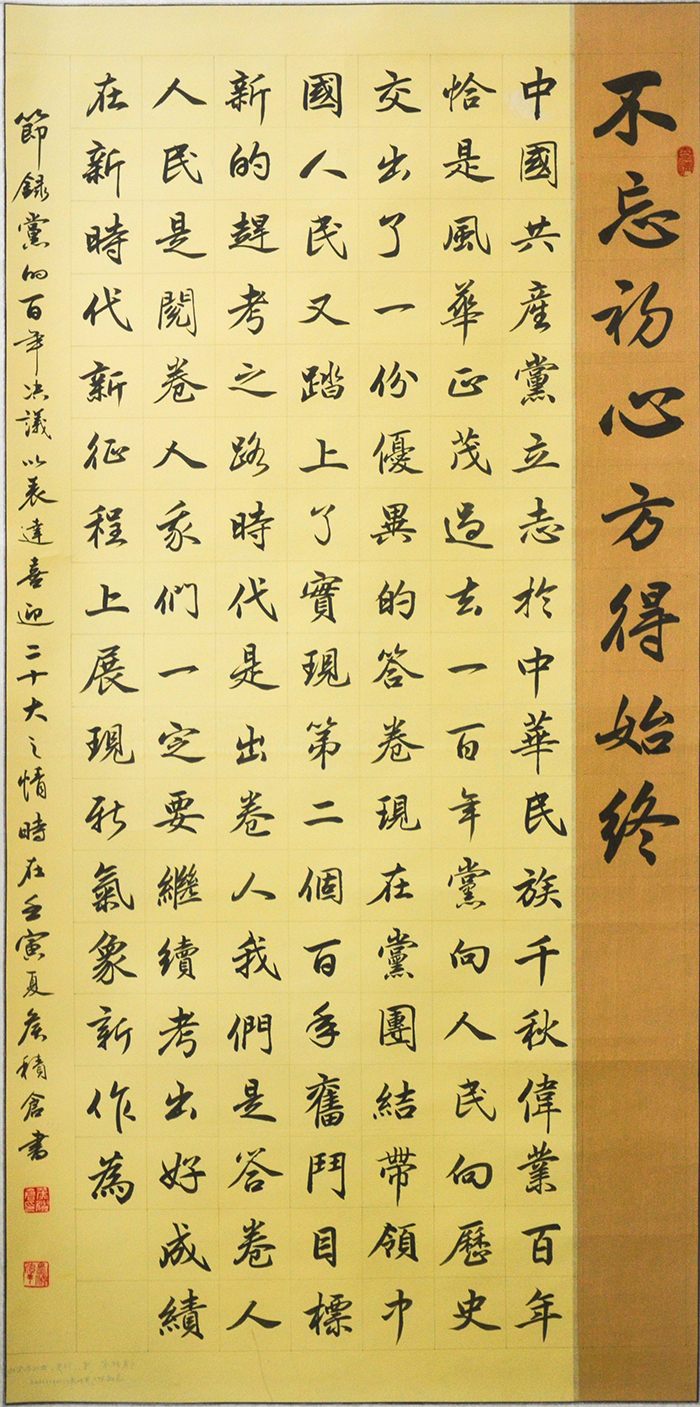 不忘初心方得始終
中國共産黨立志於中華民族千秋偉業百年
恰是風華正茂過去一百年黨向人民向歷史
交出了一份優異的答卷現在黨團結帶領中
國人民又踏上了實現第二個百年奮鬥目標
新的趕考之路時代是出卷人我們是答卷人
人民是閲卷人我們一定要繼續考出好成績
在新時代新征程上展現新氣象新作為
節録黨的百年决議以表達喜迎二十大之情時在壬寅夏侯積倉書